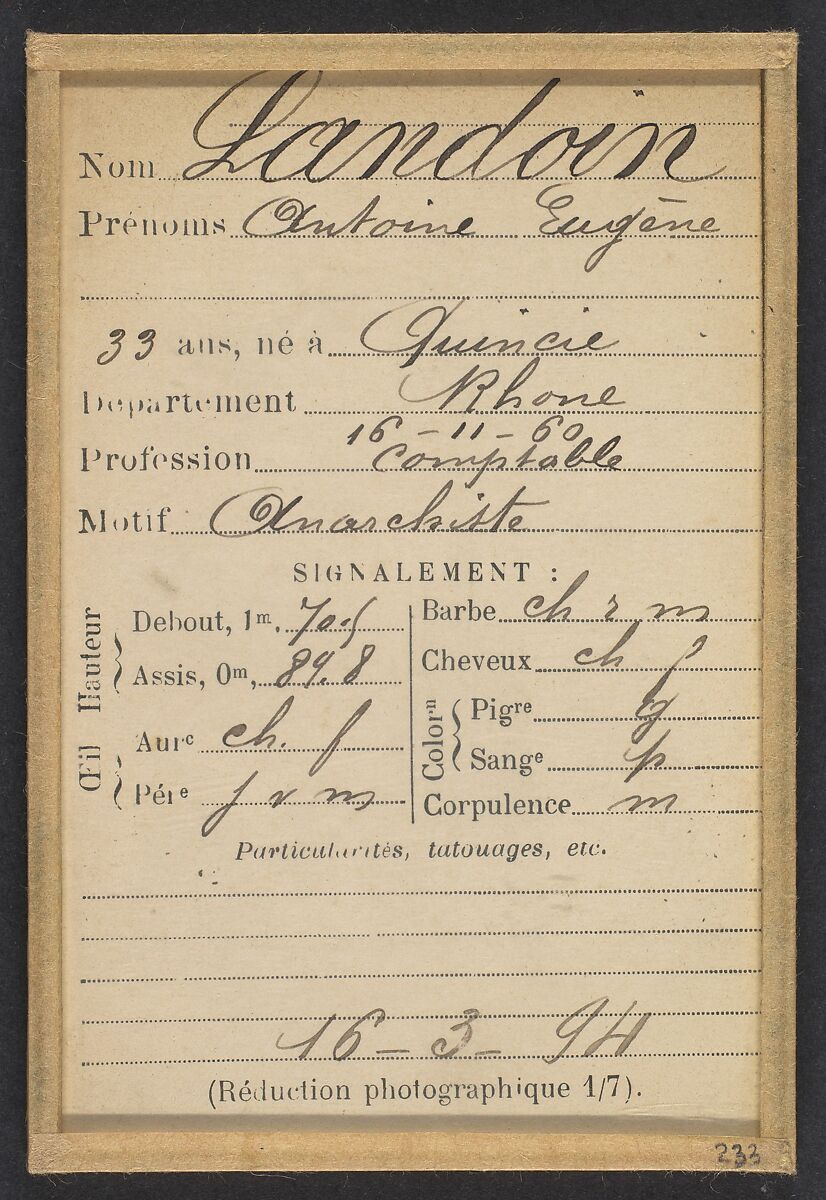 Nom Landoin
Prénoms Antoine Eugène
33 ans, né à Quincie
Département Rhone
16-11-60
Profession Comptable
Motif Anarchiste
SIGNALEMENT :
Hauteur
Debout, 1m. 70.5
Assis, 0m, 89.8
Œil
Aurc ch. f
Pére j r m
Barbe ch r m
Cheveux ch f
Colorn
Pigre g
Sange p
Corpulence m
Particularités, tatouages, etc.
16-3-94
(Réduction photographique 1/7).
233